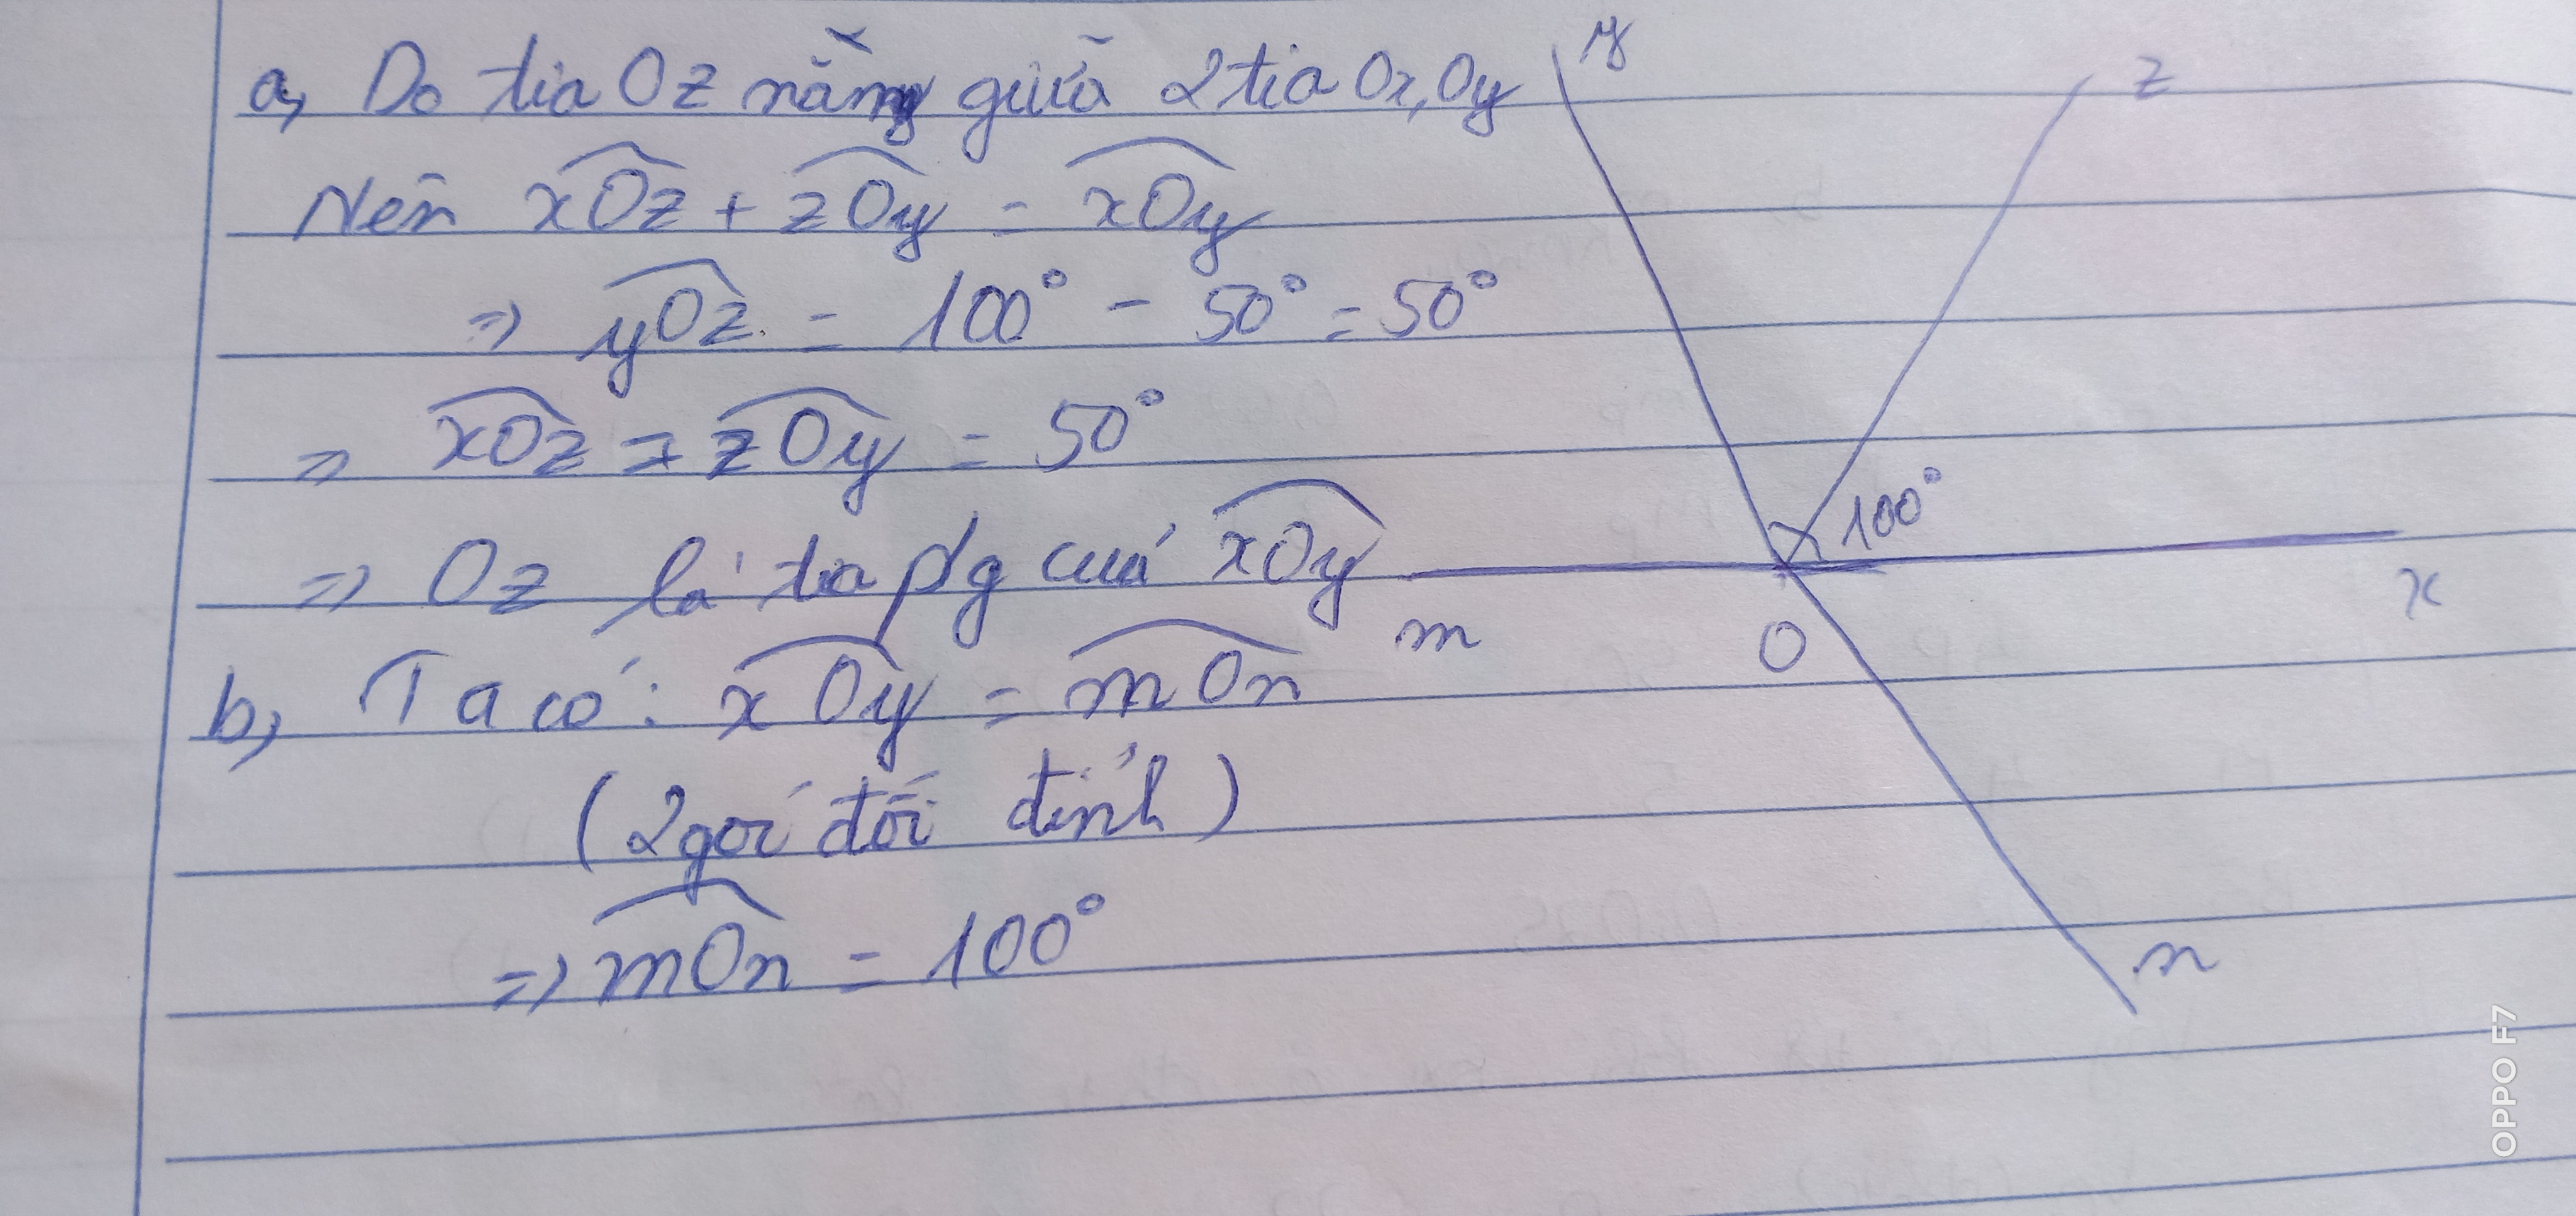 a, Do tia Oz nằm giữa 2 tia Ox, Oy
Nên xOz + zOy = xOy
=> yOz = 100° - 50° = 50°
=> xOz = zOy = 50°
=> Oz là tia p/g cuả xOy
b, Ta có: xOy = mOn
(2 goí đối đỉnh)
=> mOn = 100°
y
z
100°
m
O
x
n
OPPO F7